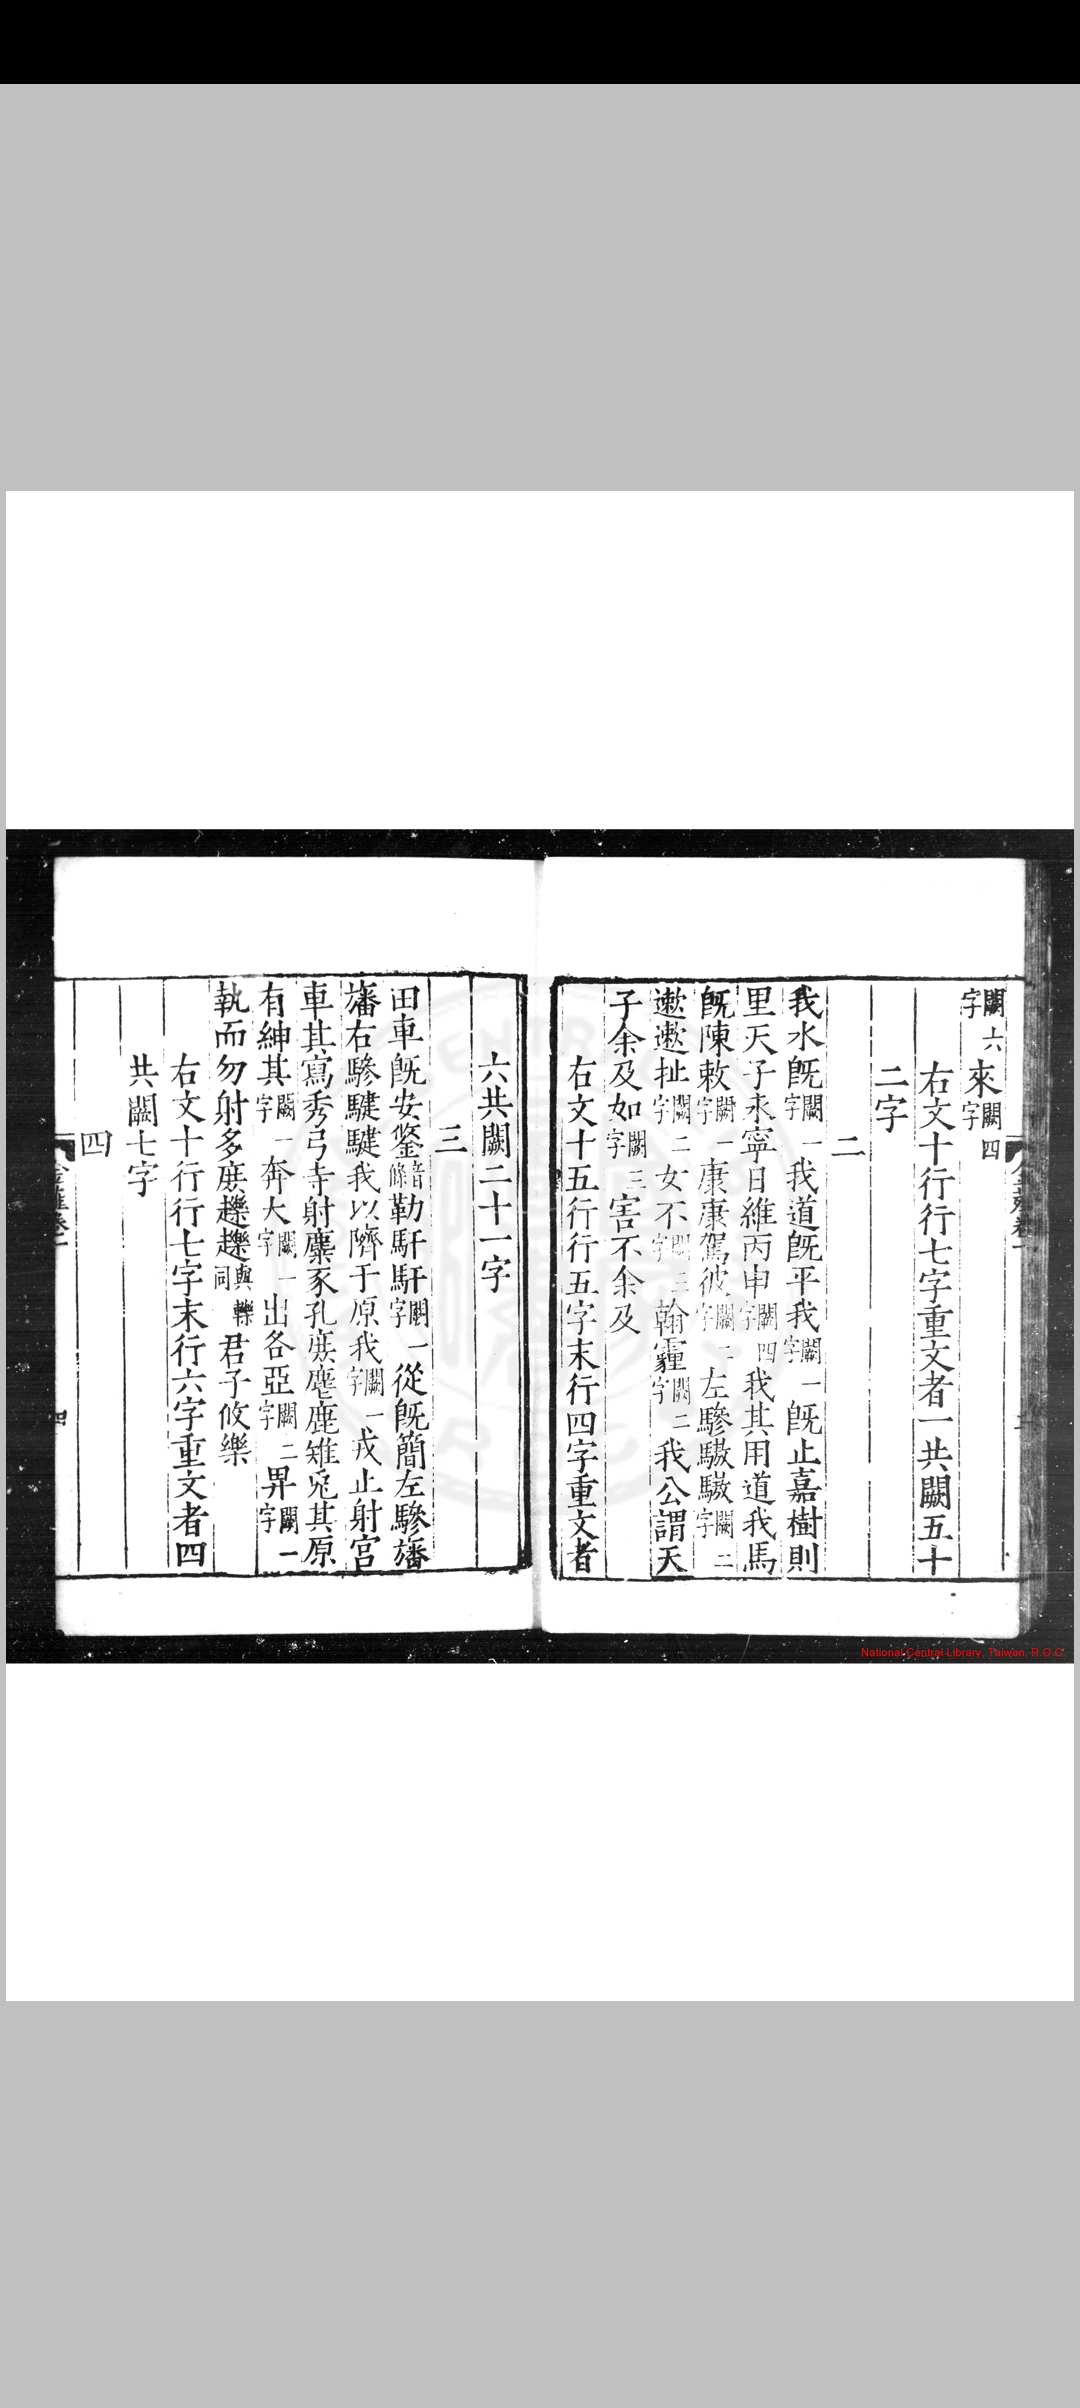 闕六字來闕四字
右文十行行七字重文者一共闕五十
二字
二
我水旣闕一字我道旣平我闕一字旣止嘉樹則
里天子永寧日維丙申闕四字我其用道我馬
旣陳敕闕一字康康駕彼闕二字左驂驐驐闕二字
遬遬㧗闕二字女不闕三字翰霾闕二字我公謂天
子余及如闕三字害不余及
右文十五行行五字末行四字重文者
六共闕二十一字
三
田車旣安鋚音條勒馯馯闕一字從旣簡左驂旛
旛右驂騝騝我以隮于原我闕一字戎止射宫
車其寫秀弓寺射麋豕孔庶麀鹿雉兎其原
有紳其闕一字奔大闕一字出各亞闕二字昦闕一字
執而勿射多庶趮趮與轢同君子攸樂
右文十行行七字末行六字重文者四
共闕七字
四
National Central Library, Taiwan, R.O.C.